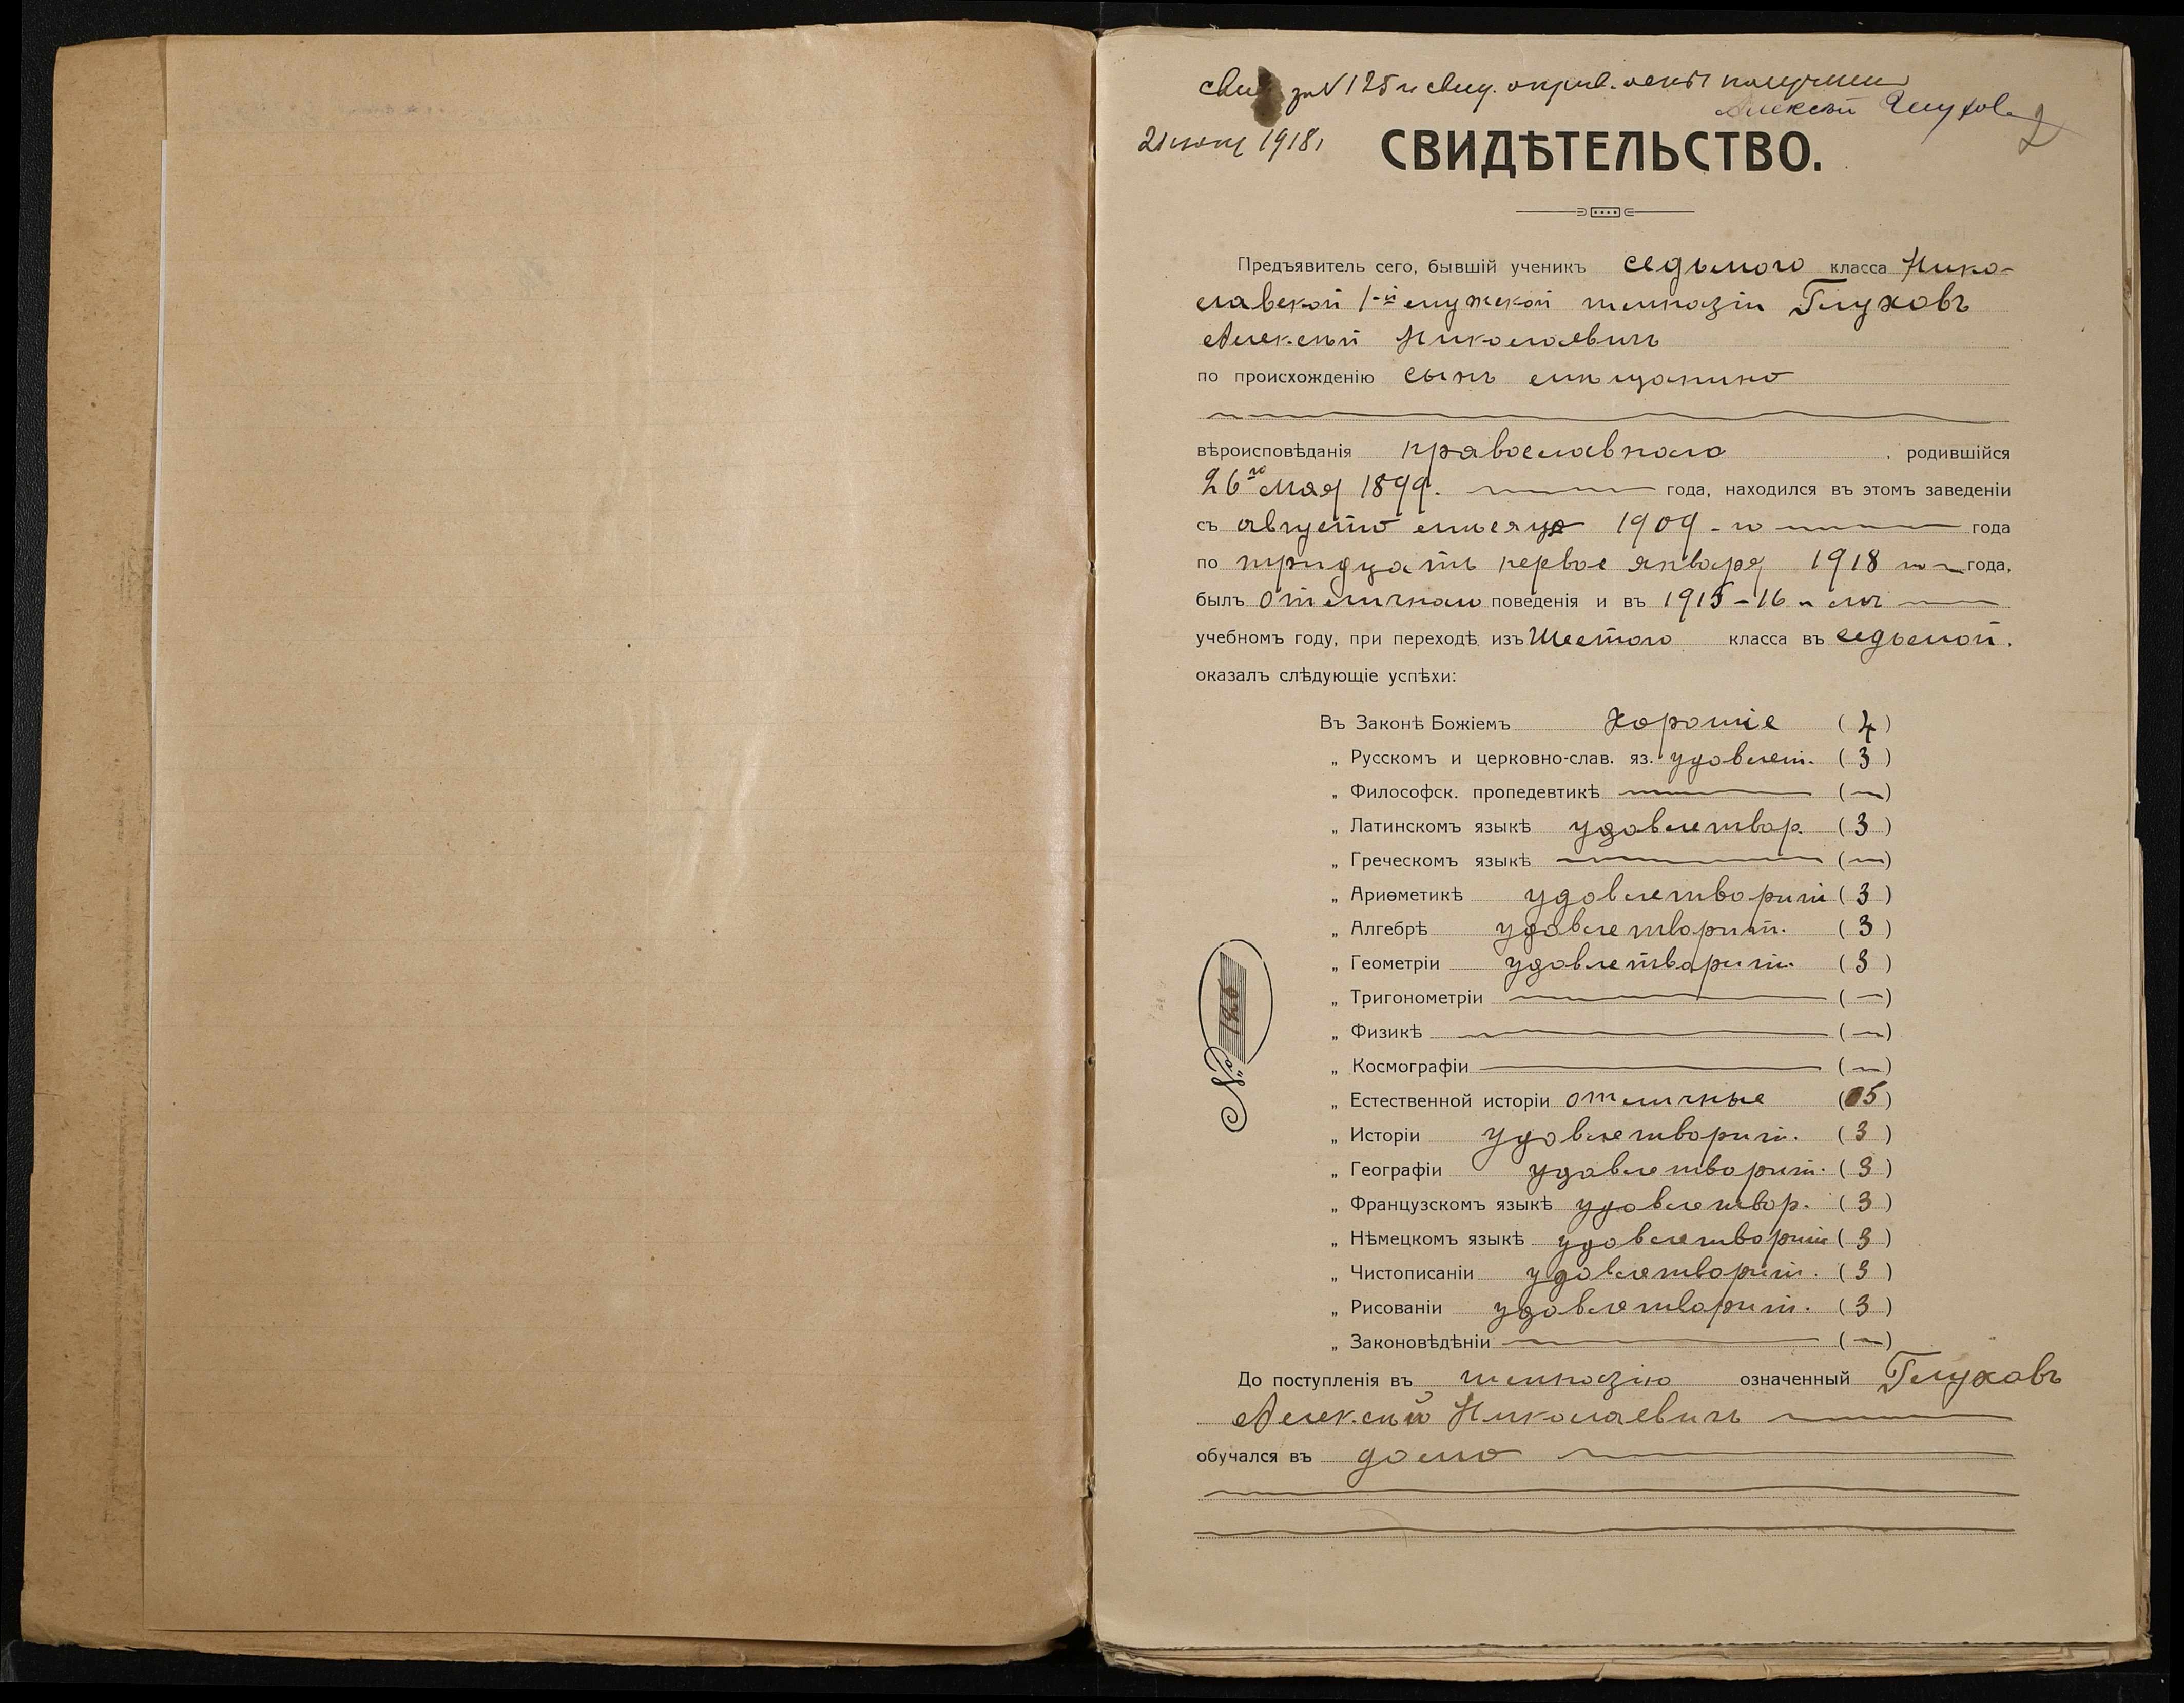 свид за N 125 и свид. о прив. оспы получил
Алексей Глухов
2
21 июня 1918 г
СВИДѢТЕЛЬСТВО.
Предъявитель сего, бывшій ученикъ седьмого класса Нико-
лаевской 1-й мужской гимназіи Глуховъ
Алексѣй Николаевичъ
по происхожденію сынъ мѣщанина
вѣроисповѣданія православнаго, родившійся
26го Мая 1899. года, находился въ этомъ заведеніи
съ августа мѣсяца 1909-го года
по тридцать первое января 1918 го года,
былъ отличнаго поведенія и въ 1915-16 мъ
учебномъ году, при переходѣ изъ Шестого класса въ седьмой.
оказалъ слѣдующіе успѣхи:
Въ Законѣ Божіемъ Хорошіе (4)
„ Русскомъ и церковно-слав. яз. удовлет. (3)
„ Философск. пропедевтикѣ (—)
„ Латинскомъ языкѣ удовлетвор. (3)
„ Греческомъ языкѣ (—)
„ Ариѳметикѣ удовлетворит (3)
„ Алгебрѣ удовлетворит. (3)
„ Геометріи удовлетворит. (3)
„ Тригонометріи (—)
„ Физикѣ (—)
„ Космографіи (—)
„ Естественной исторіи отличные (5)
„ Исторіи удовлетворит. (3)
„ Географіи удовлетворит. (3)
„ Французскомъ языкѣ удовлетвор. (3)
„ Нѣмецкомъ языкѣ удовлетворит (3)
„ Чистописаніи удовлетворит. (3)
„ Рисованіи удовлетворит. (3)
„ Законовѣдѣніи (—)
№ 125
До поступленія въ гимназію означенный Глуховъ
Алексѣй Николаевичъ
обучался въ дома